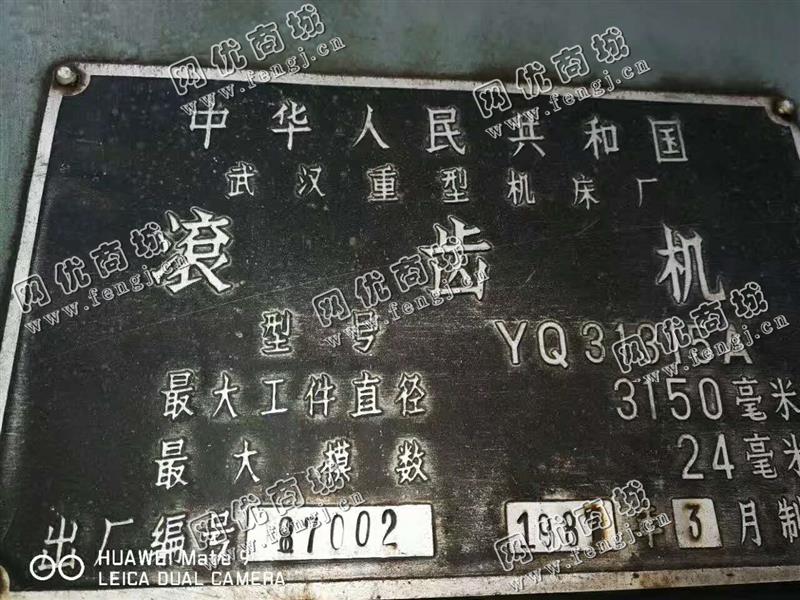 中华人民共和国
武汉重型机床厂
滚齿机
型号
最大工件直径 3150毫米
最大模数 24毫米
出厂编号 87002 1987年3月制
HUAWEI Mate 7
LEICA DUAL CAMERA
网优商城
www.fengj.cn
网优商城
www.fengj.cn
网优商城
www.fengj.cn
网优商城
www.fengj.cn
网优商城
www.fengj.cn
网优商城
www.fengj.cn
网优商城
www.fengj.cn